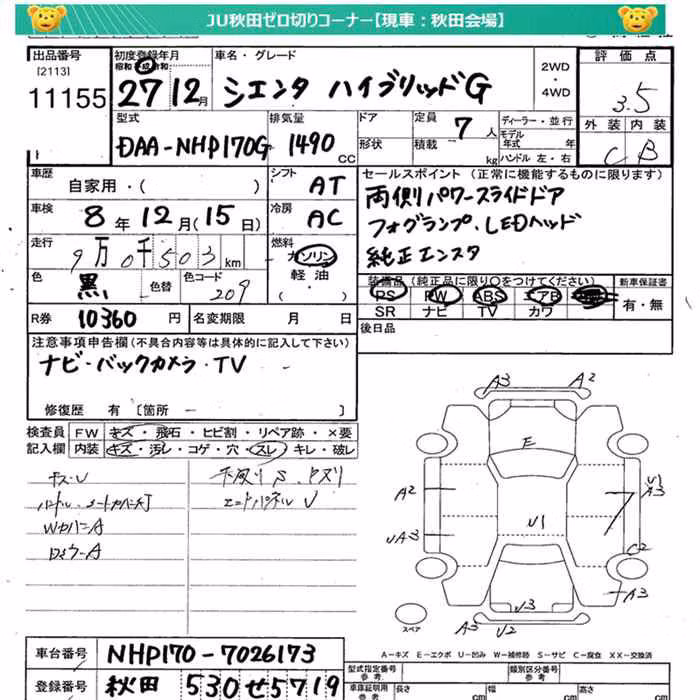 JU秋田ゼロ切りコーナー【現車：秋田会場】
出品番号
[2113]
11155
初度登録年月
昭和 平成 令和
27 12月
車名・グレード
シエンタ ハイブリッドG
2WD
・
4WD
評価点
3.5
外装 内装
C B
型式
DAA-NHP170G
排気量
1490 CC
ドア
形状
定員
7 人
積載
kg
ディーラー・並行
モデル
年式 年
ハンドル 左・右
車歴
自家用・( )
シフト
AT
セールスポイント (正常に機能するものに限ります)
両側パワースライドドア
フォグランプ、LEDヘッド
純正エンスタ
車検
8年12月(15日)
冷房
AC
走行
9万0千503km
燃料
ガソリン
軽油
( ・ )
色
黒
色替
色コード
209
装備品 (純正品に限り○をつけてください)
PS PW ABS エアB
SR ナビ TV カワ
新車保証書
有・無
R券 10360円
名変期限 月 日
後日品
注意事項申告欄(不具合内容等は具体的に記入して下さい)
ナビ・バックカメラ・TV
修復歴 有 [箇所 ]
検査員
記入欄
FW キズ・飛石・ヒビ割・リペア跡・×要
内装 キズ・汚レ・コゲ・穴・スレ・キレ・破レ
WカバーA
エンドパネル U
A3 A2
E
A2
U1
A3
UA3
U1
C2
A3
U3
A3 U2
スペア
A－キズ E－エクボ U－凹み W－補修跡 S－サビ C－腐食 XX－交換済
車台番号 NHP170-7026173
登録番号 秋田 530 せ 5719
型式指定番号
参考
類別区分番号
参考
車庫証明用
参考
長さ cm
幅 cm
高さ cm